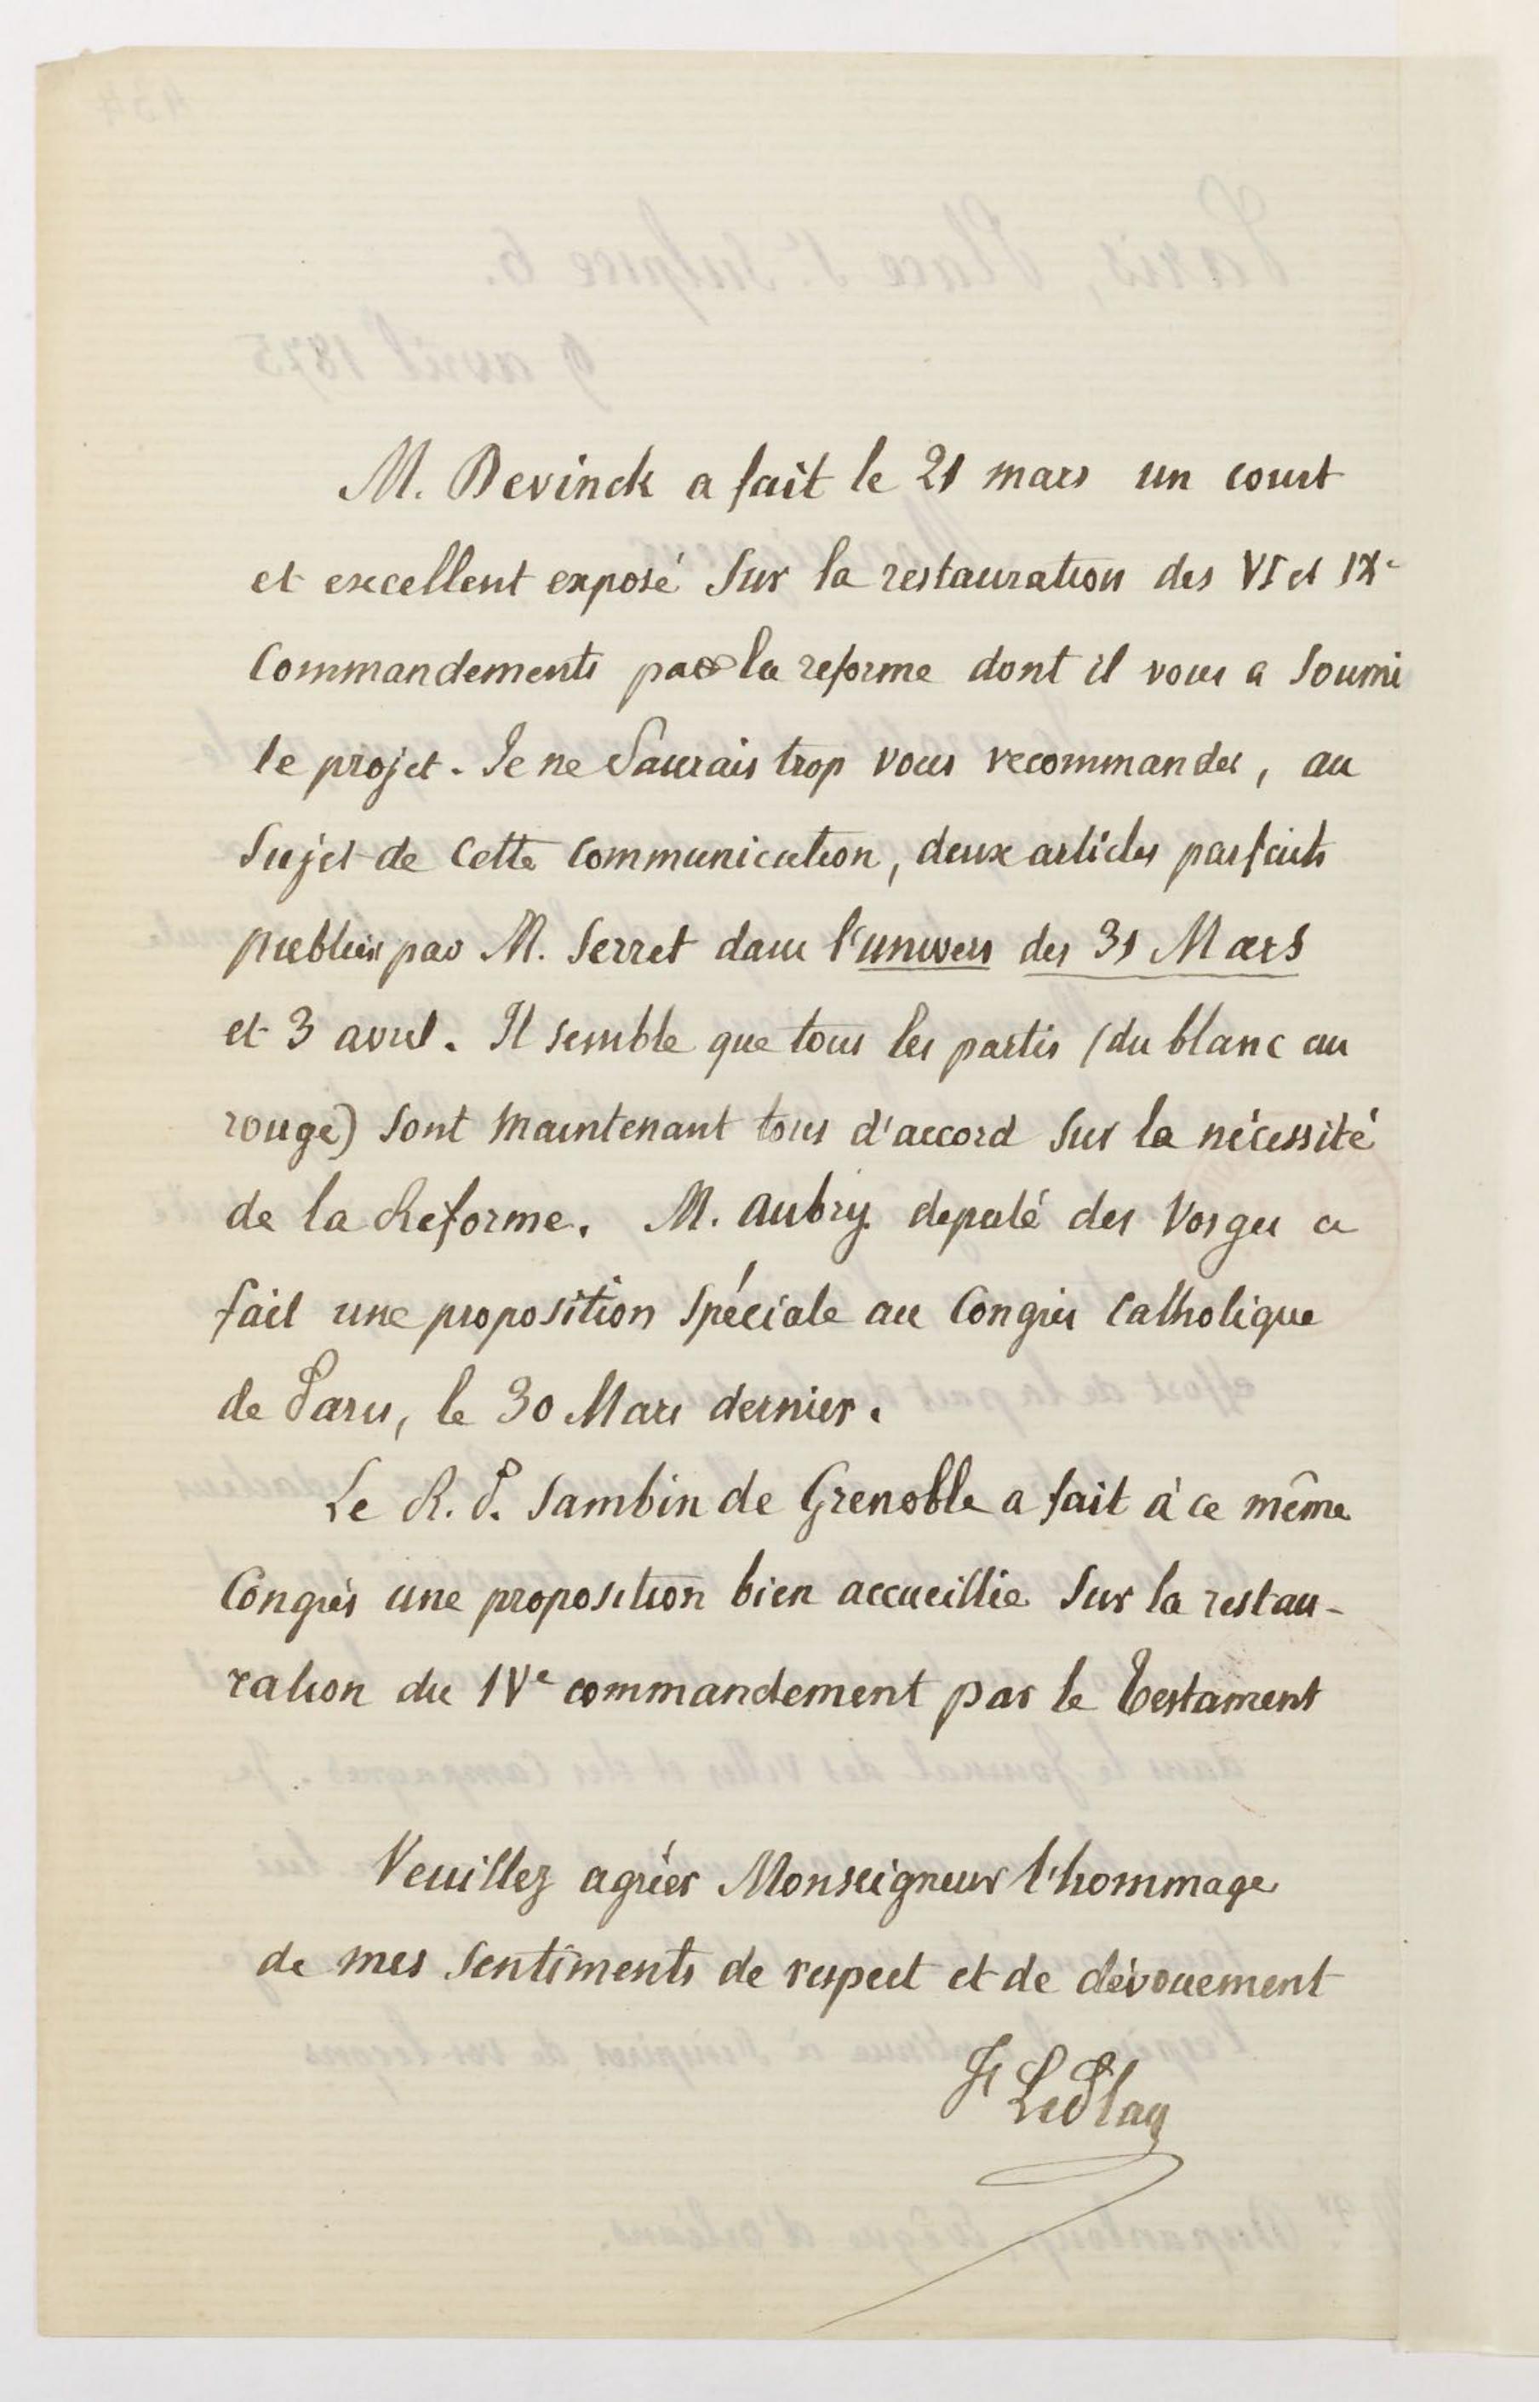 M. Devinck a fait le 21 mars un court
et excellent exposé sur la restauration des VI et IXe
Commandements par la reforme dont il vous a soumi
le projet. Je ne saurais trop vous recommander, au
sujet de cette communication, deux articles parfaits
publiés par M. Serret dans l'univers des 31 Mars
et 3 avril. Il semble que tous les partis (du blanc au
rouge) sont maintenant tous d'accord sur la nécessité
de la Reforme. M. Aubry deputé des Vosges a
fait une proposition spéciale au Congrès Catholique
de Paris, le 30 Mars dernier.
Le R. P. Sambin de Grenoble a fait à ce même
Congrès une proposition bien accueillie sur la restau-
ration du IVe commandement par le Testament
Veuillez agréer Monseigneur l'hommage
de mes sentiments de respect et de dévouement
F LePlay